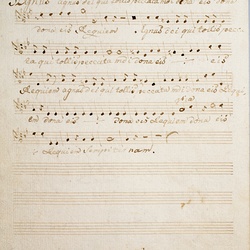 Agnus agnus dei qui tollis peccata mundi dona eis dona
dona eis Requiem Agnus dei qui tollis pecca
ta qui tollis peccata mundi dona eis eis
Requiem agnus dei qui tollis peccata mundi dona eis Requi
em dona eis dona eis Requiem dona eis
Requiem Sempiternam.